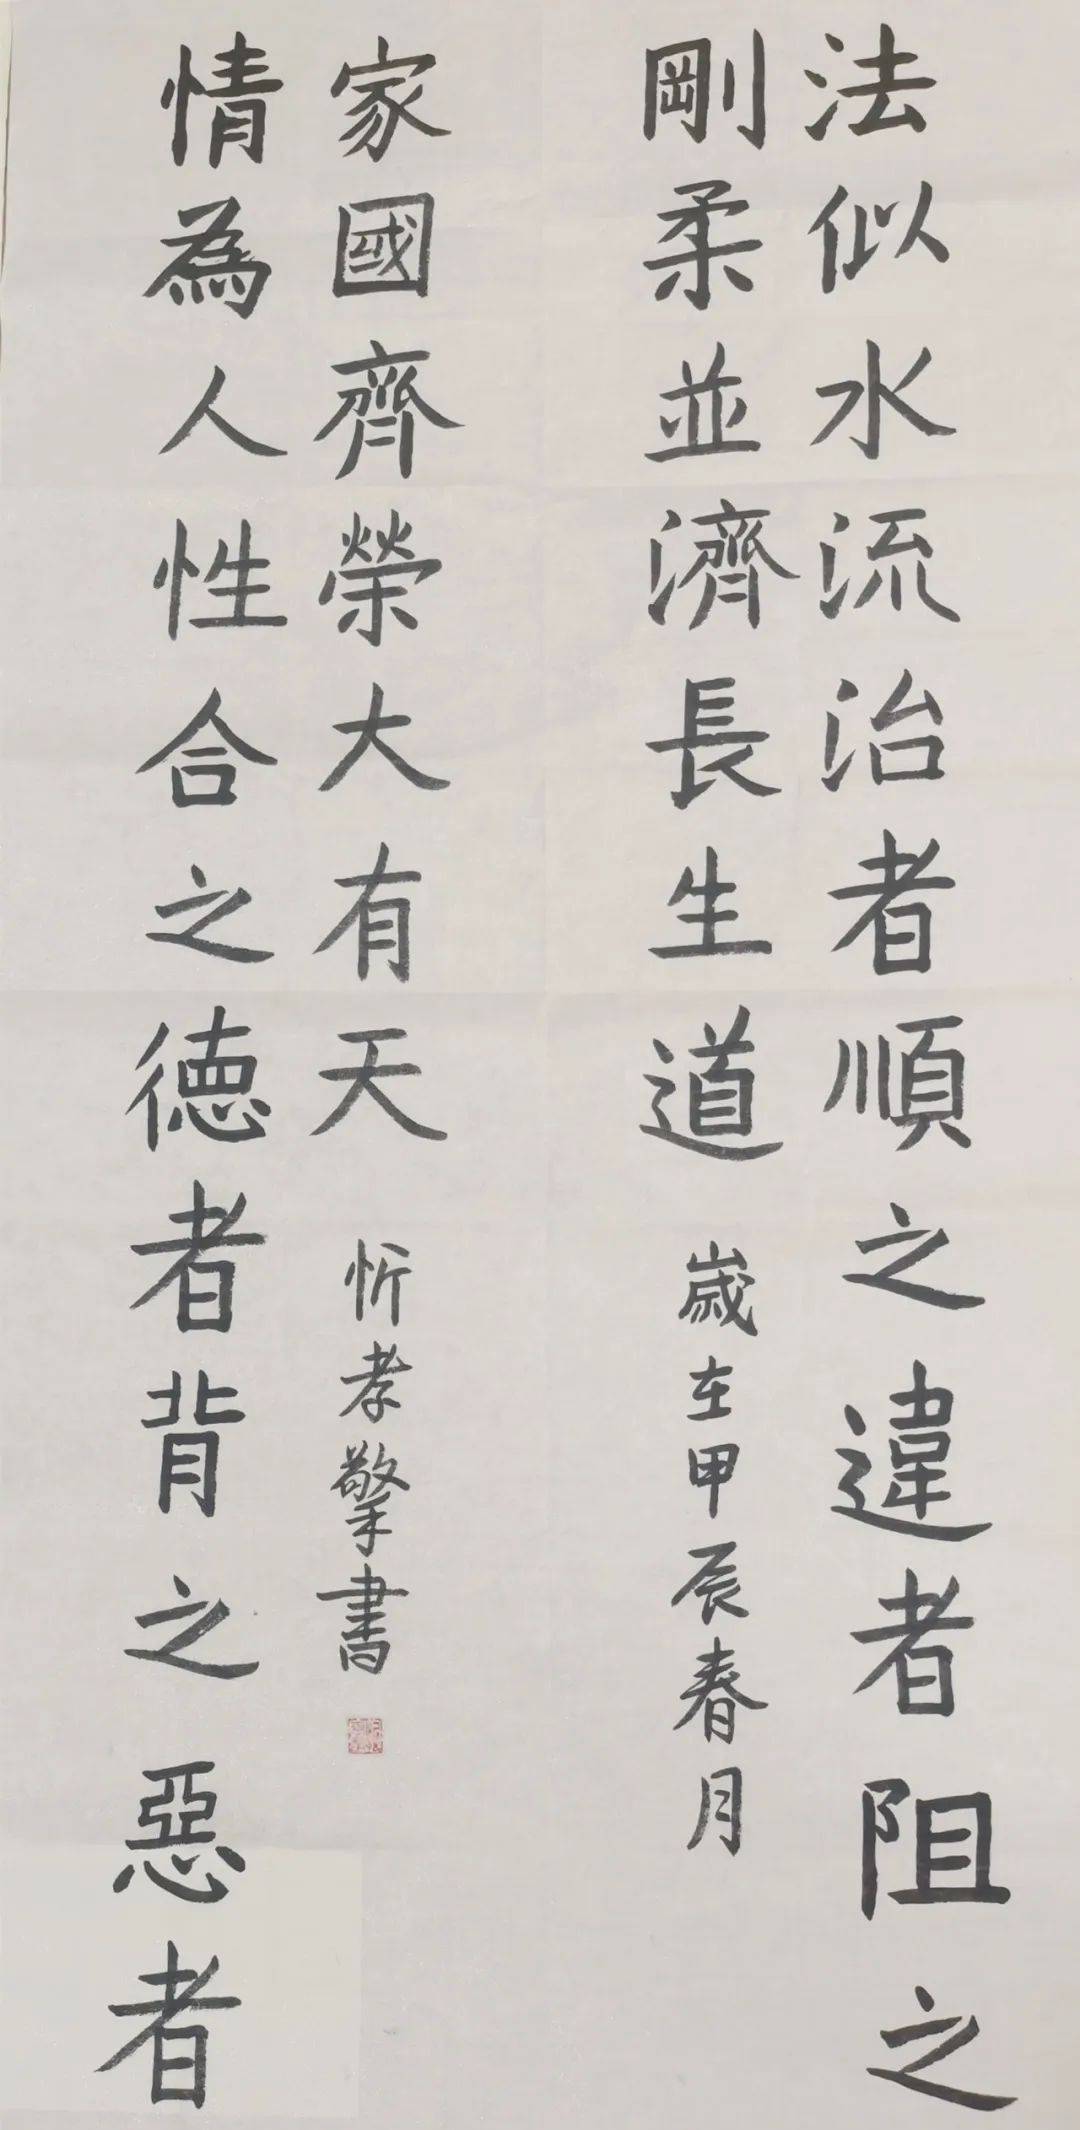 法似水流治者順之違者阻之
剛柔並濟長生道 歲在甲辰春月
情為人性合之德者背之惡者
家國齊榮大有天 忻孝擎書